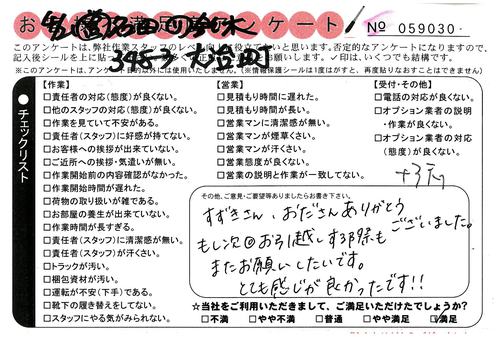 お 満足 アンケート
№ 059030
このアンケートは、弊社作業スタッフのレベル向上に役立てたいと思います。否定的なアンケートになりますので、
記入後シールを上に貼っ お願いします。✓印は、いくつでも結構です。
※このアンケートは、アンケート目的以外には使用いたしません。(※情報保護シールは1度はがすと、再度貼りなおすことはできません)
チェックリスト
【作業】
□責任者の対応(態度)が良くない。
□他のスタッフの対応(態度)が良くない。
□作業を見ていて不安がある。
□責任者(スタッフ)に好感が持てない。
□お客様への挨拶が出来ていない。
□ご近所への挨拶・気遣いが無い。
□作業開始前の内容確認がなかった。
□作業開始時間が遅れた。
□荷物の取り扱いが雑である。
□お部屋の養生が出来ていない。
□作業時間が長すぎる。
□責任者(スタッフ)に清潔感が無い。
□責任者(スタッフ)が汗くさい。
□トラックが汚い。
□梱包資材が汚い。
□運転が不安(下手)である。
□靴下の履き替えをしてない。
□スタッフにやる気がみられない。
【営業】
□見積もり時間に遅れた。
□見積もり時間が長い。
□営業マンに清潔感が無い。
□営業マンが煙草くさい。
□営業マンが汗くさい。
□営業態度が良くない。
□営業の説明と作業が一致してない。
【受付・その他】
□電話の対応が良くない。
□オプション業者の説明
・作業が良くない。
□オプション業者の対応
(態度)が良くない。
その他、ご意見・ご要望等ありましたらお書き下さい。
すずきさん、おださんありがとう
ございました。
もし次回お引越しする際も
またお願いしたいです。
とても感じが良かったです!!
☆当社をご利用いただきまして、ご満足いただけたでしょうか?
□不満 □やや不満 □普通 □やや満足 ☑満足